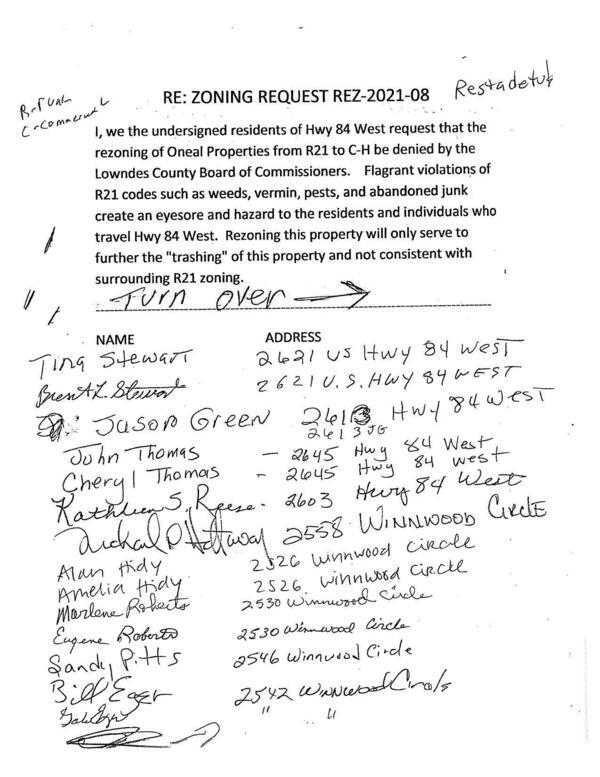 R-rural
C-commercial
RE: ZONING REQUEST REZ-2021-08
I, we the undersigned residents of Hwy 84 West request that the
rezoning of Oneal Properties from R21 to C-H be denied by the
Lowndes County Board of Commissioners. Flagrant violations of
R21 codes such as weeds, vermin, pests, and abandoned junk
create an eyesore and hazard to the residents and individuals who
travel Hwy 84 West. Rezoning this property will only serve to
further the "trashing" of this property and not consistent with
surrounding R21 zoning.
Turn over →
NAME ADDRESS
Tina Stewart 2621 US Hwy 84 West
Brent L. Stewart 2621 U.S. HWY 84 WEST
Jason Green 2613 Hwy 84 West
2613 JG
John Thomas - 2645 Hwy 84 West
Cheryl Thomas - 2645 Hwy 84 West
Kathleen S. Reese. 2603 Hwy 84 West
2558 WINNWOOD CIRCLE
Alan Hidy 2526 Winnwood Circle
Amelia Hidy 2526 Winnwood Circle
Marlene Roberts 2530 Winnwood Circle
Eugene Roberts 2530 Winnwood Circle
Sandy Pitts 2546 Winnwood Circle
Bill Eager 2542 Winnwood Circle
" "